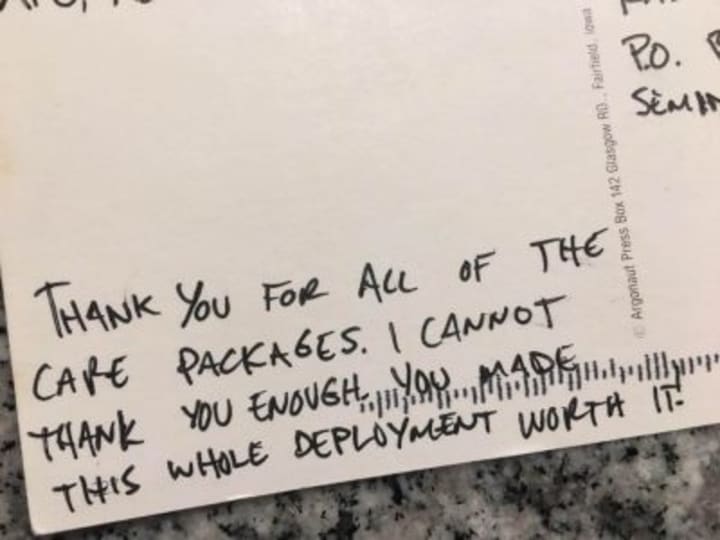 THANK YOU FOR ALL OF THE
CARE PACKAGES. I CANNOT
THANK YOU ENOUGH. YOU MADE
THIS WHOLE DEPLOYMENT WORTH IT.
© Argonaut Press Box 142 Glasgow RD., Fairfield, Iowa
P.O.